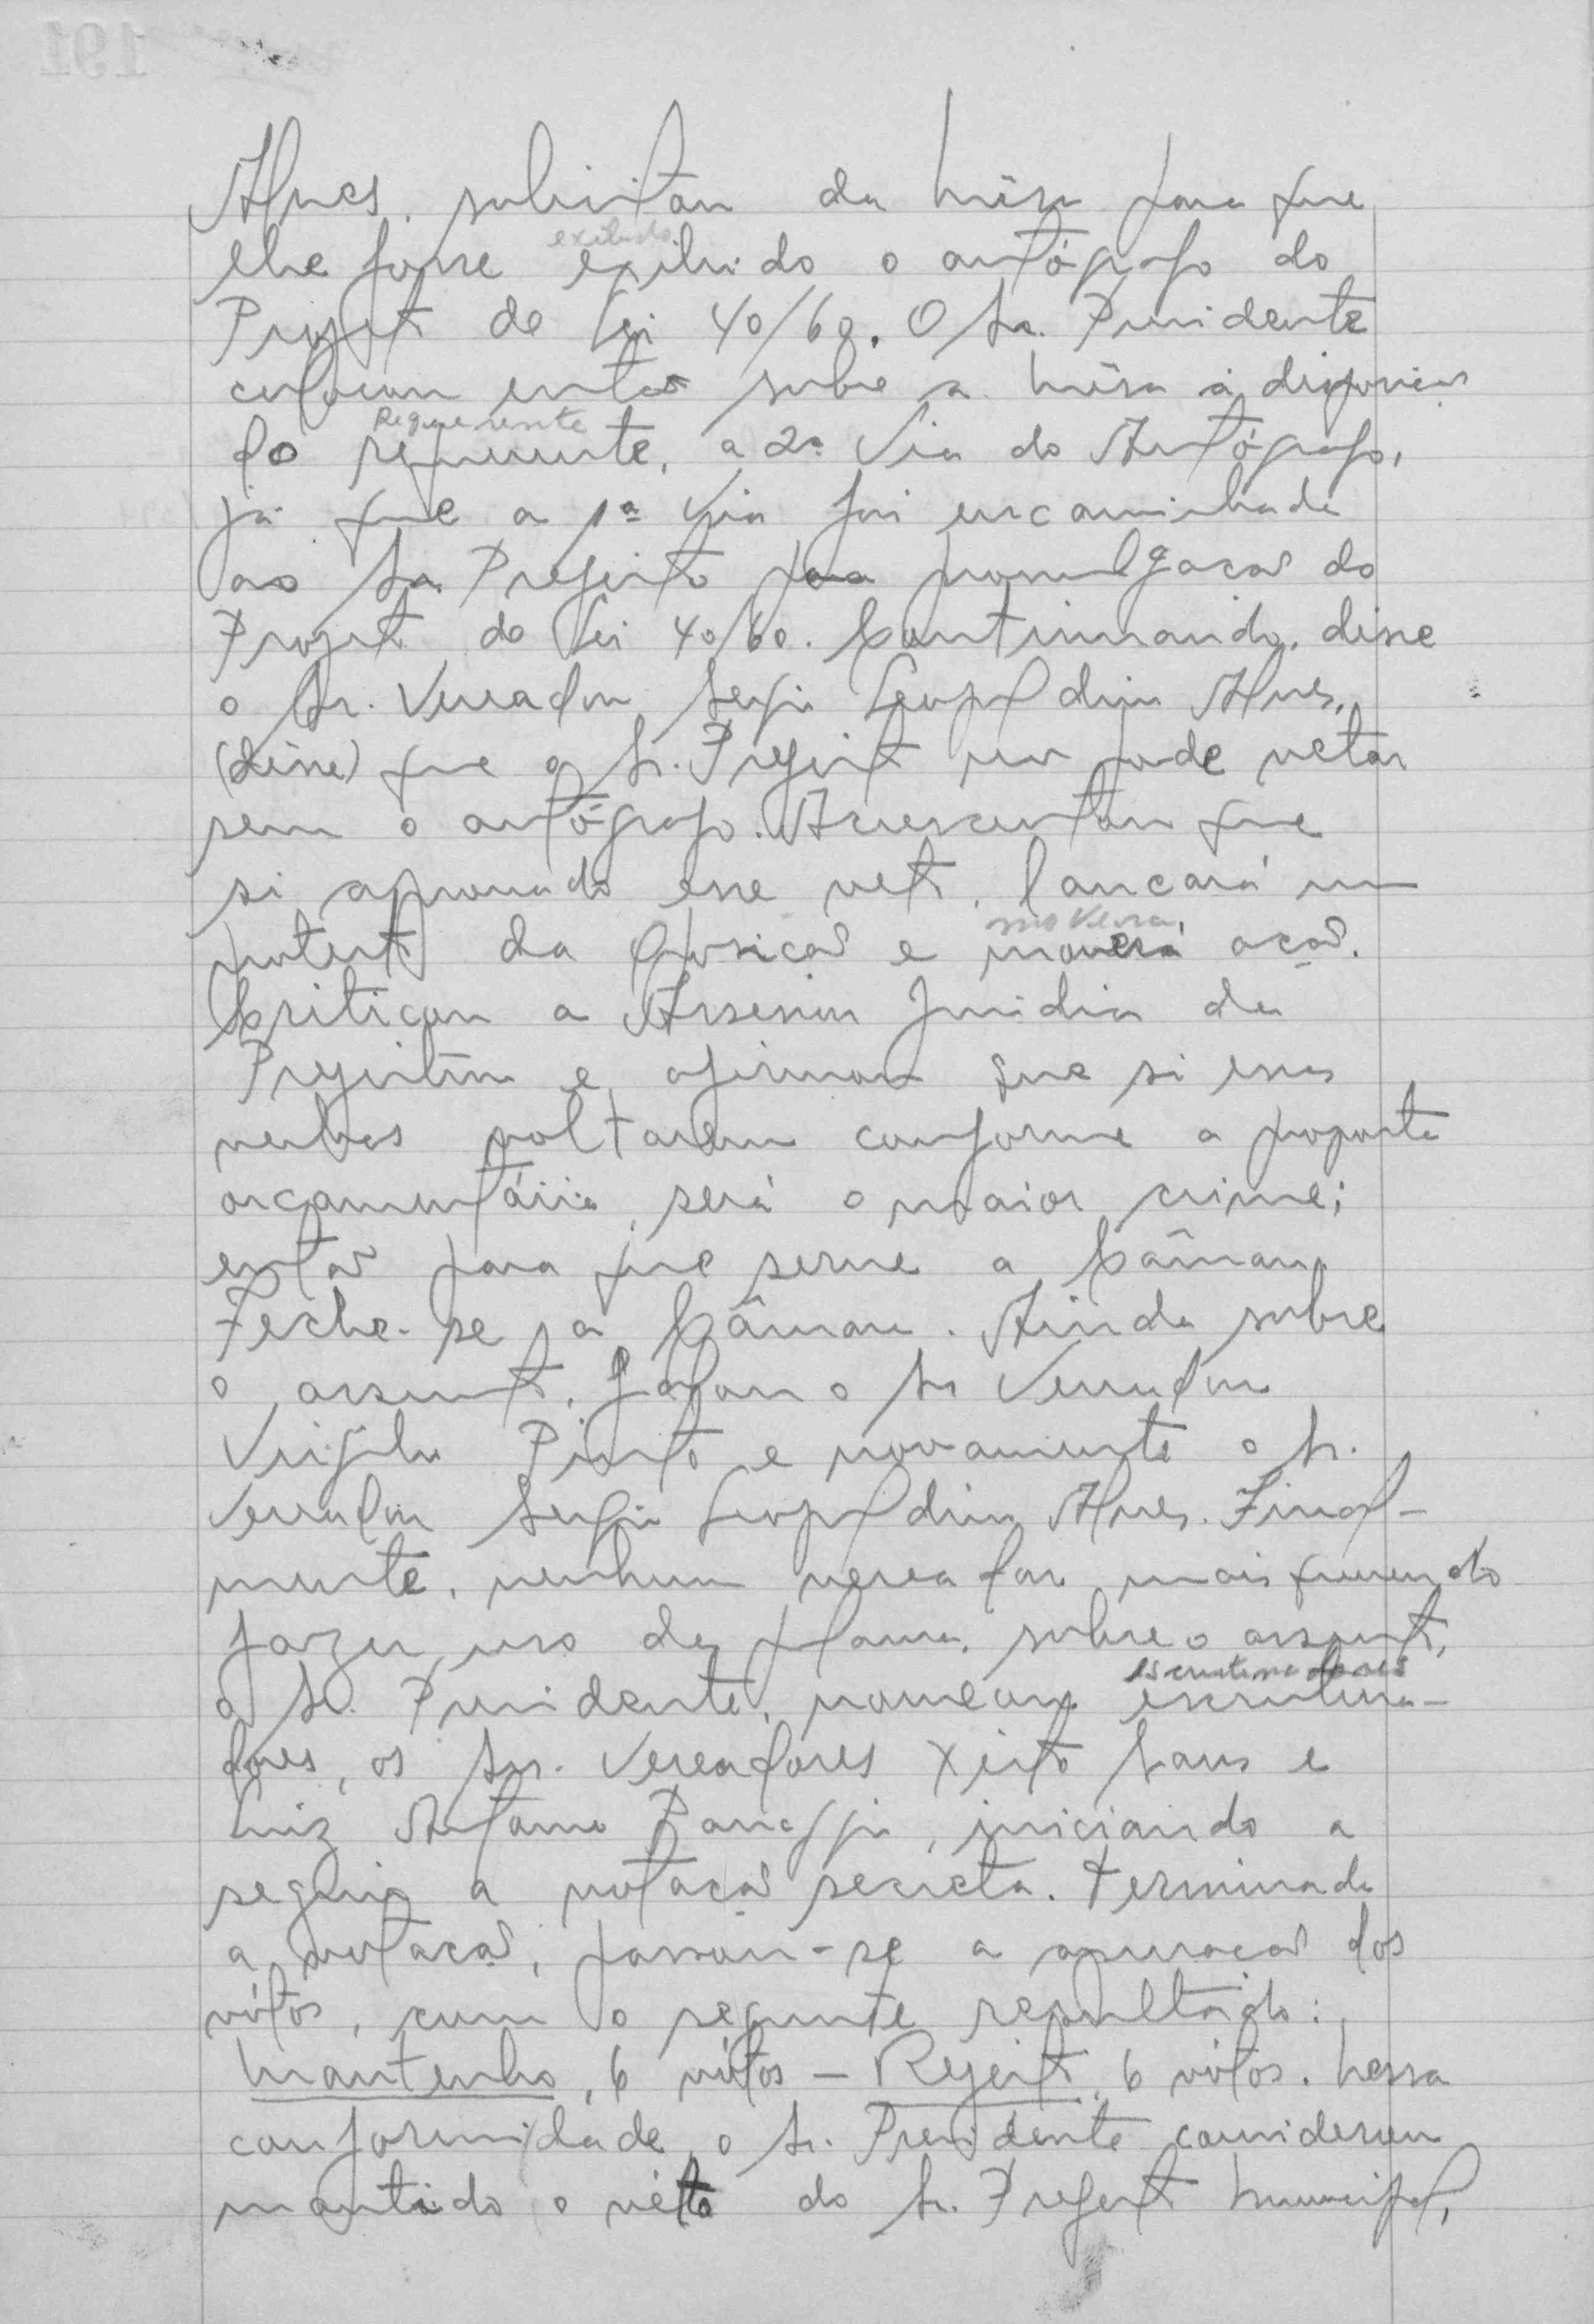 Alves, solicitou da Mêsa para que
exibido
lhe fosse exibido o autógrafo do
Projeto de Lei 40/60. O Sr. Presidente
colocou então sobre a Mêsa à disposição
Requerente
do requerente, a 2ª Via do Autógrafo,
já que a 1ª Via foi encaminhada
ao Sr. Prefeito para promulgação do
Projeto de Lei 40/60. Continuando, disse
o Sr. Vereador Sergio Leopoldino Alves,
(disse) que o Sr. Prefeito não pode vetar
sem o autógrafo. Acrescentou que
si aprovado esse veto, lançará um
moverá
protesto da Oposição e moverá ação.
Criticou a Assessoria Juridica da
Prefeitura e afirmou que si essas
verbas voltarem conforme a proposta
orçamentária, será o maior crime;
então para que serve a Câmara.
Feche-se a Câmara. Ainda sobre
o assunto, falou o Sr. Vereador
Virgilio Pinto e novamente o Sr.
Vereador Sergio Leopoldino Alves. Final-
mente, nenhum vereador mais querendo
fazer uso da palavra, sobre o assunto,
escrutinadores
o Sr. Presidente, nomeou escrutina-
dores, os Srs. Vereadores Xisto e
Luiz Antonio, iniciando a
seguir a votação secreta. Terminada
a votação, passou-se a apuração dos
vótos, com o seguinte resultado:
Mantenho, 6 vótos - Rejeito, 6 vótos. Nessa
conformidade, o Sr. Presidente considerou
mantido o véto do Sr. Prefeito Municipal,
191